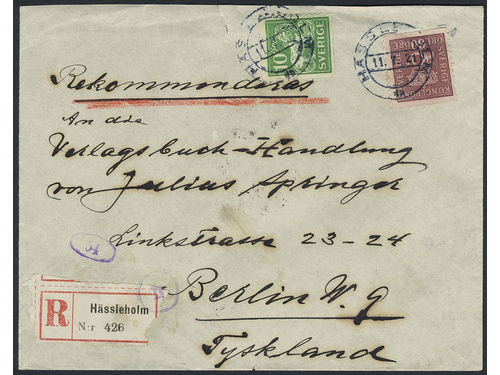 10
SVERIGE
HÄSSLEHOLM
HÄSSLEHOLM
11.
SVERIGE
Rekommenderas
An die
Verlagsbuch-Handlung
von Julius Springer
Linkstrasse 23-24
Berlin W. 9
Tyskland
R
Hässleholm
N:r 426